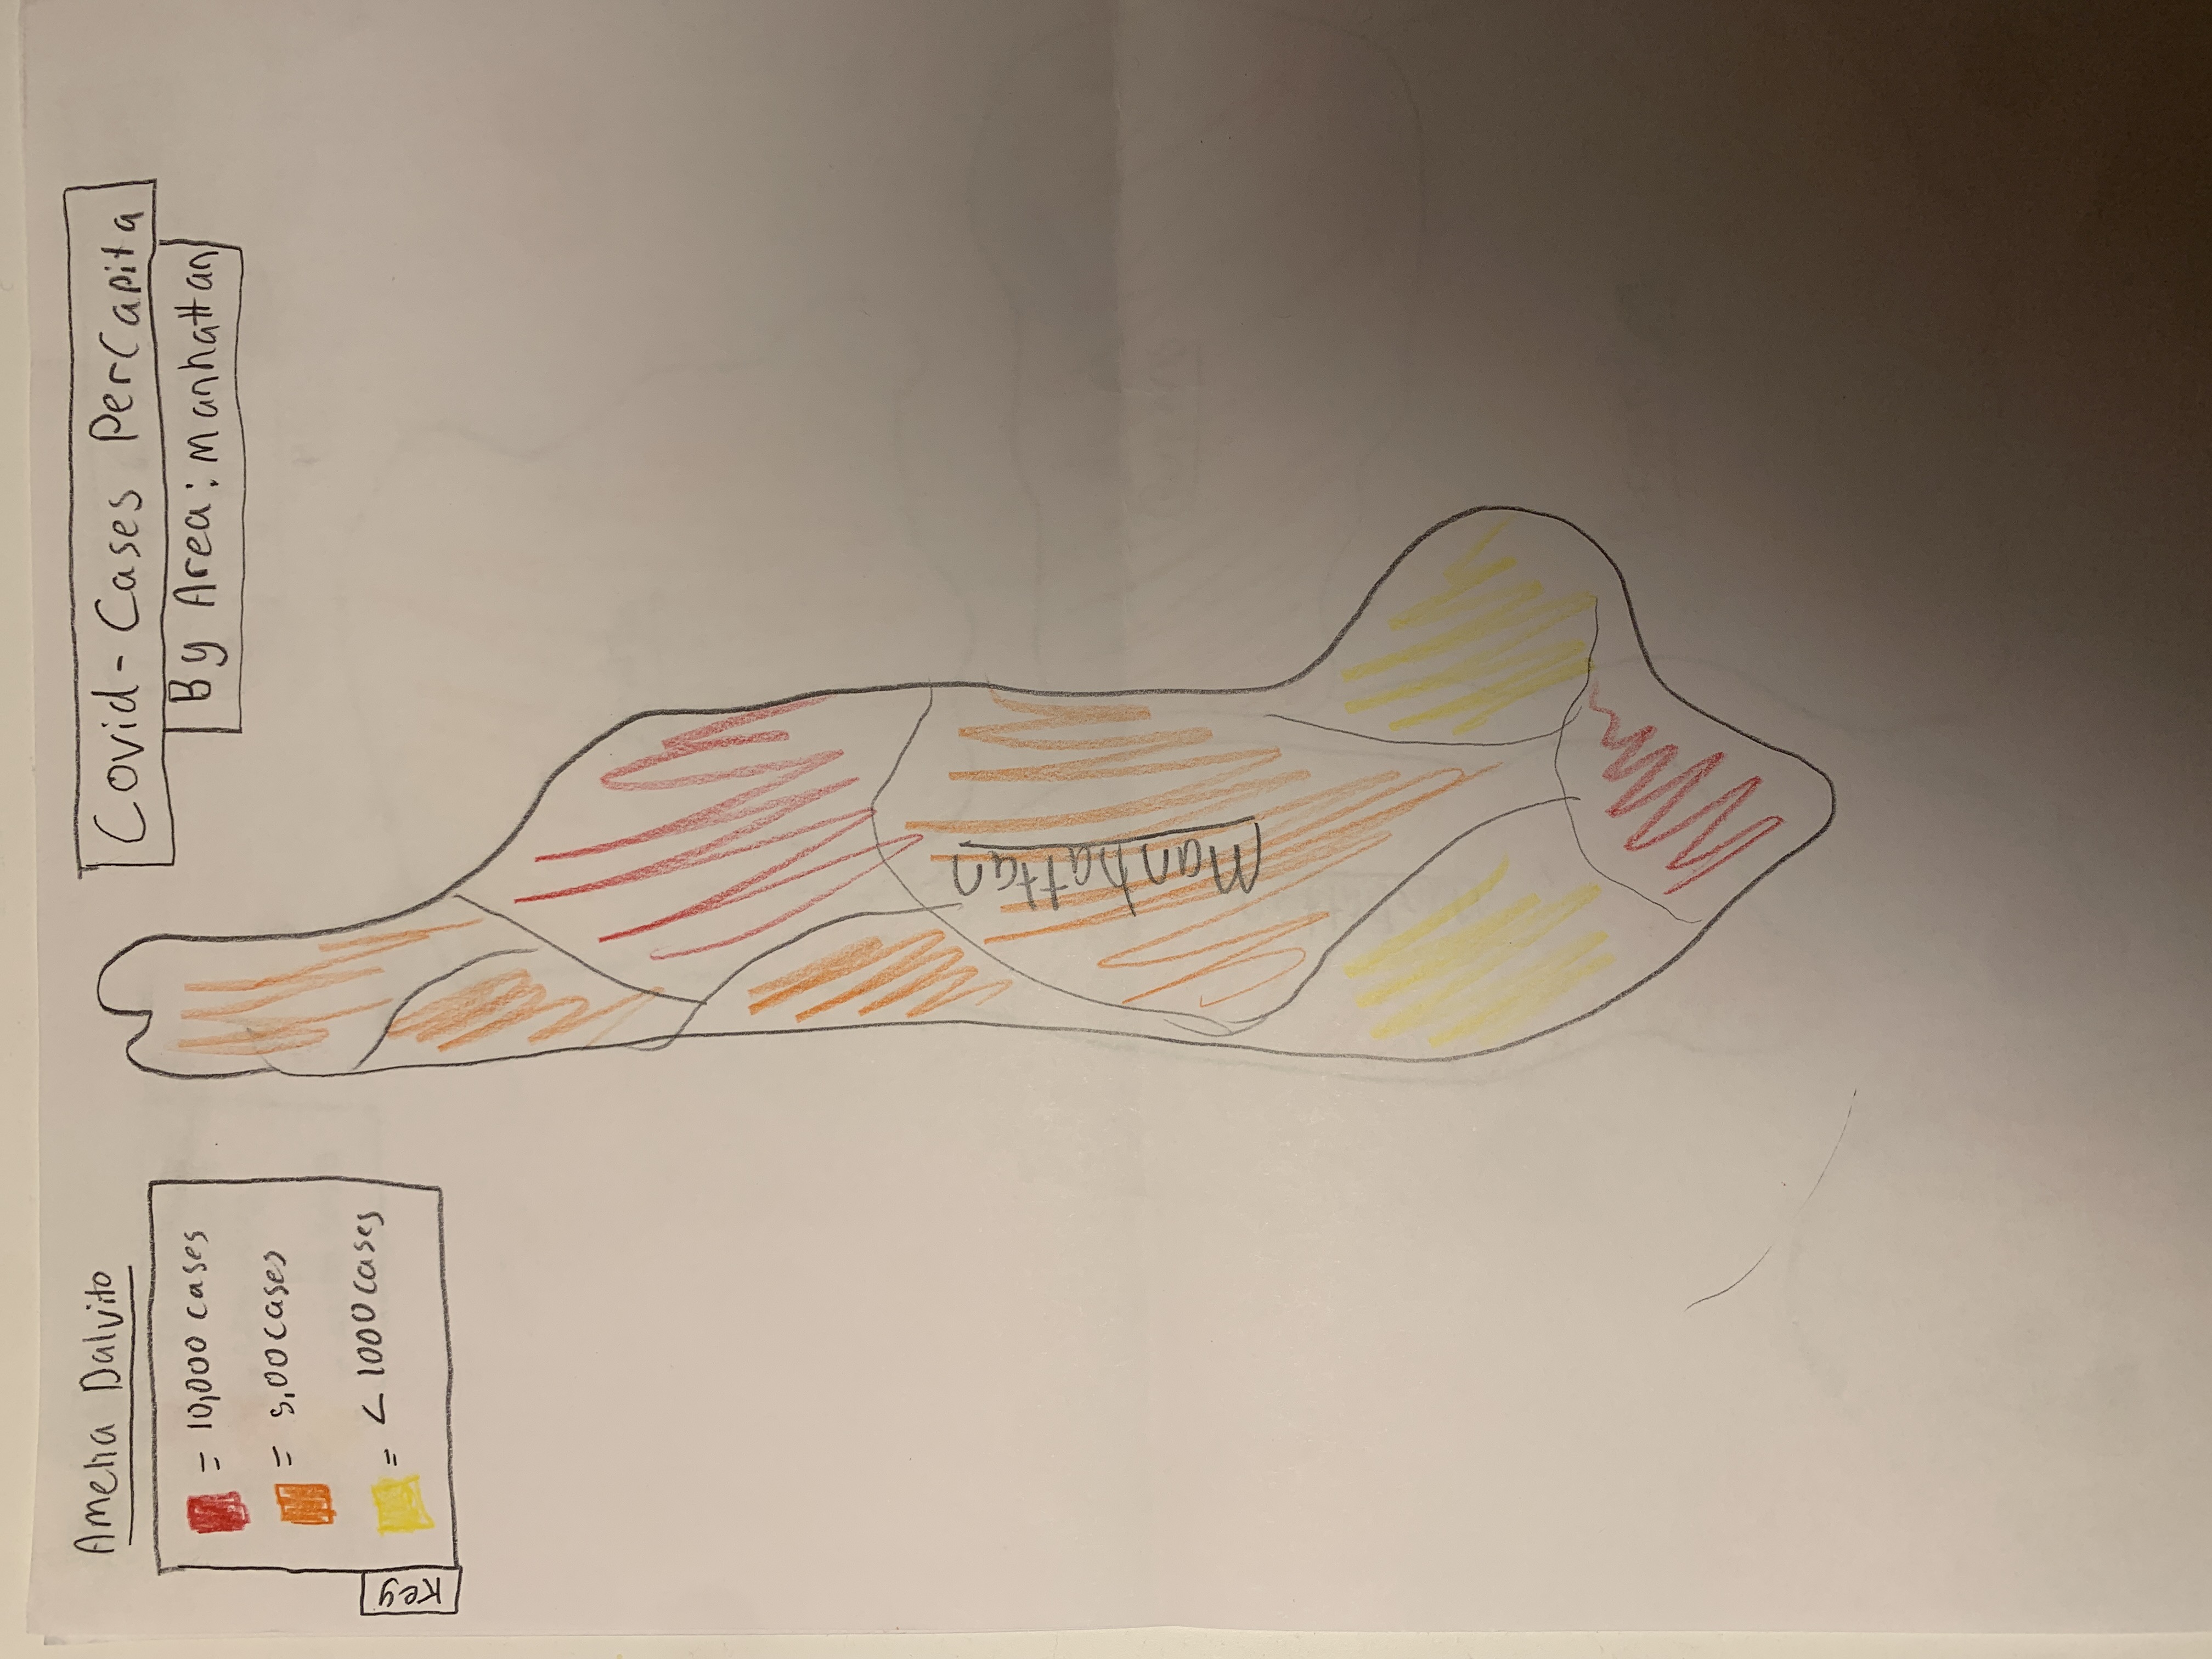 Amelia Dalvito
Covid-Cases PerCapita
By Area: Manhattan
= 10,000 cases
= 5,00 cases
= < 1000 cases
Key
Manhattan